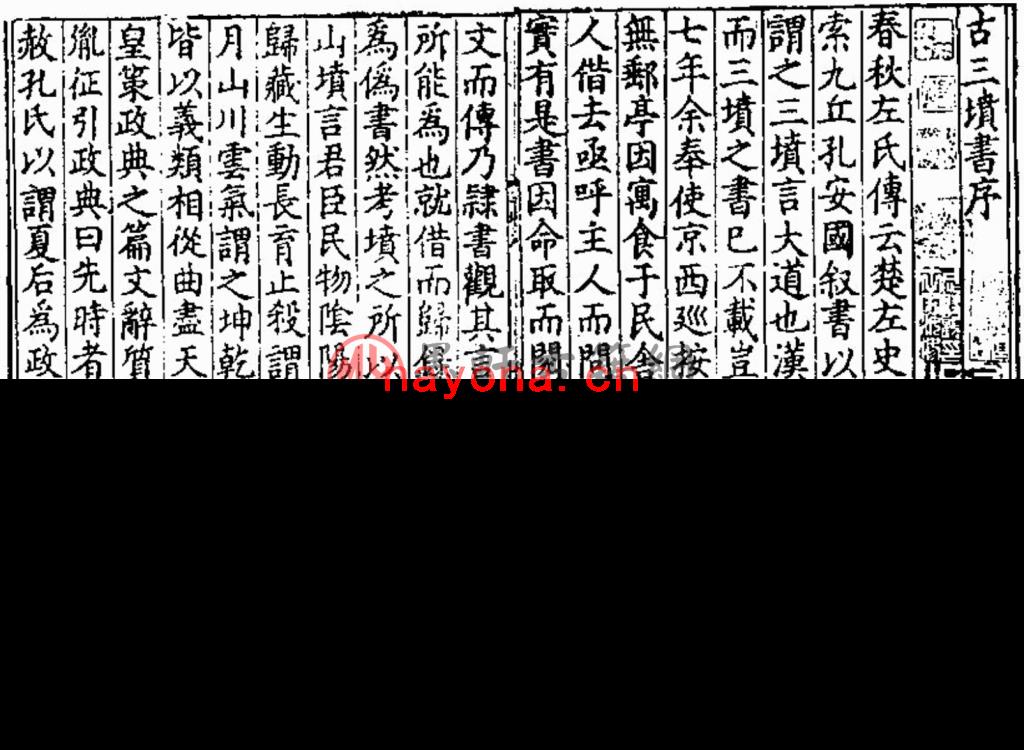 古三墳書序
春秋左氏傳云楚左史
索九丘孔安國叙書以
謂之三墳言大道也漢
而三墳之書已不載豈
七年余奉使京西廵按
無郵亭因寓食于民舍
人借去亟呼主人而問
實有是書因命取而閱
文而傳乃隸書觀其言
所能為也就借而歸錄
為偽書然考墳之所以
山墳言君臣民物陰陽
歸藏生動長育止殺謂
月山川雲氣謂之坤乾
皆以義類相從曲盡天
皇策政典之篇文辭質
胤征引政典曰先時者
赦孔氏以謂夏后為政
nayona.cn